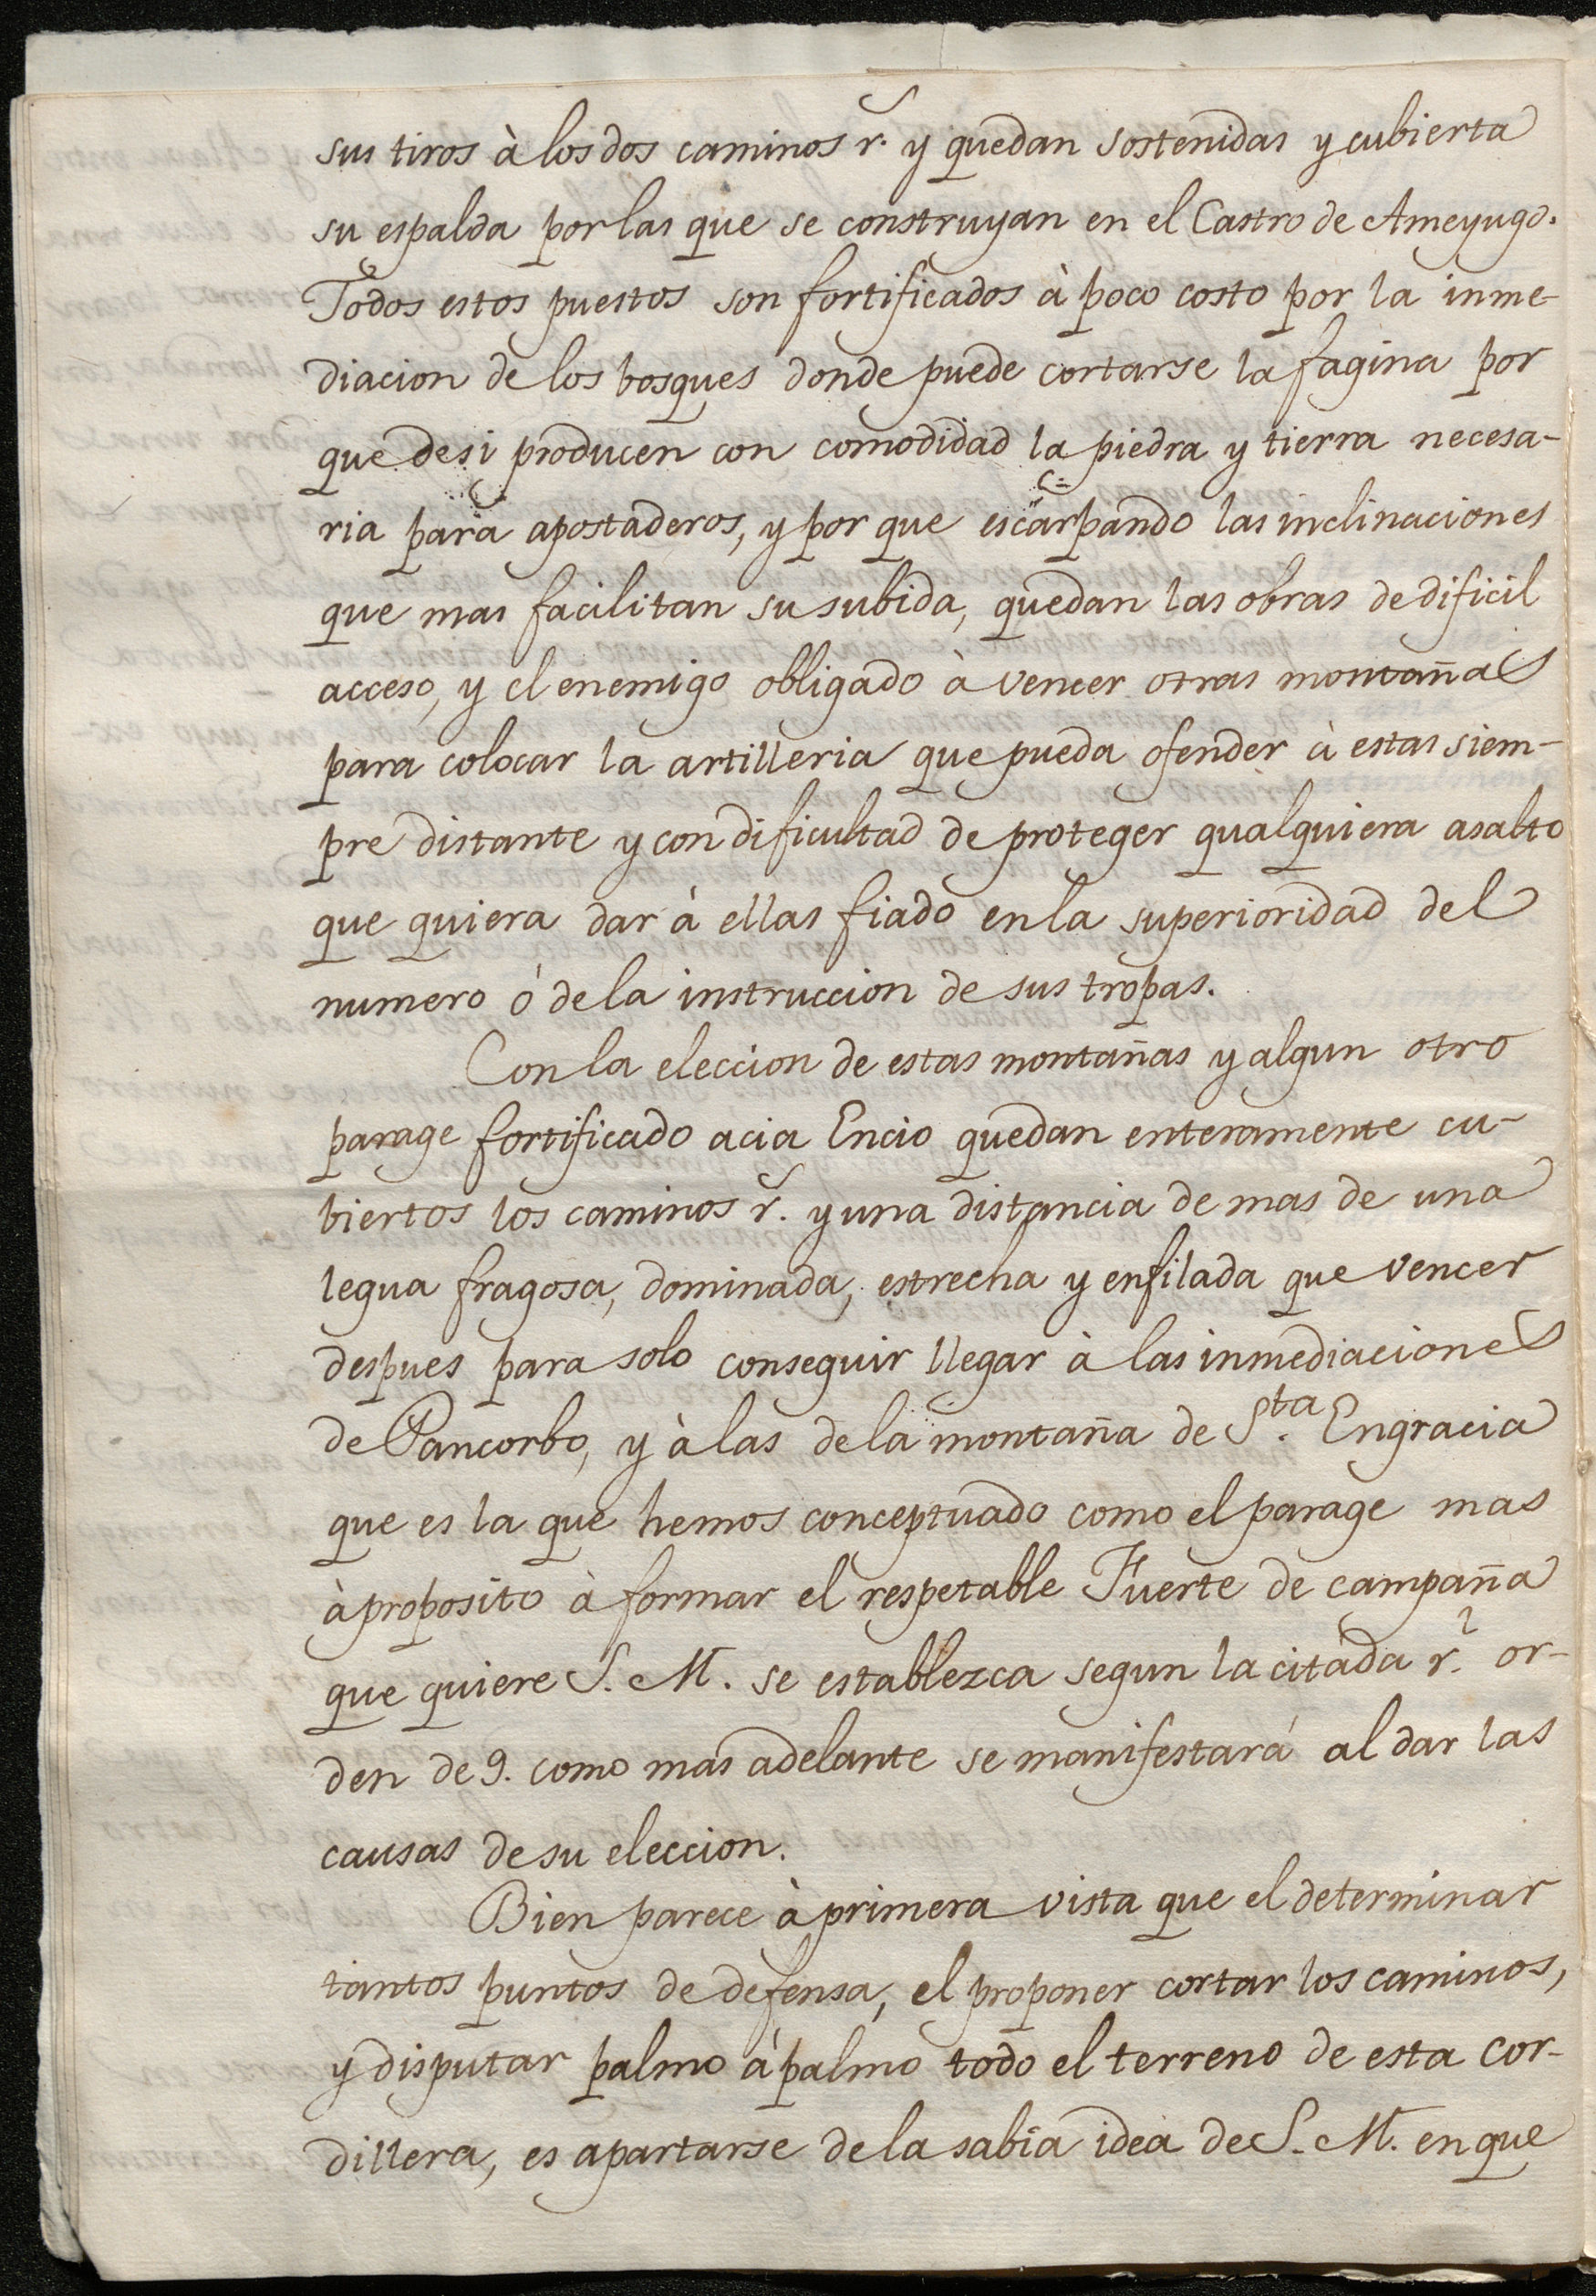 sus tiros à los dos caminos r.˜ y quedan sostenidas y cubierta
su espalda por las que se construyan en el Castro de Ameyugo.
Todos estos puestos son fortificados à poco costo por la inme-
diacion de los bosques donde puede cortarse la fagina por
que de si producen con comodidad la piedra y tierra necesa-
ria para apostaderos, y por que escarpando las inclinaciones
que mas facilitan su subida, quedan las obras de dificil
acceso, y el enemigo obligado à vencer otras montañas
para colocar la artilleria que pueda ofender à estas siem-
pre distante y con dificultad de proteger qualquiera asalto
que quiera dar à ellas fiado en la superioridad del
numero ó de la instruccion de sus tropas.
Con la eleccion de estas montañas y algun otro
parage fortificado acia Encio quedan enteramente cu-
biertos los caminos r.˜ y una distancia de mas de una
legua fragosa, dominada, estrecha y enfilada que vencer
despues para solo conseguir llegar à las inmediaciones
de Pancorbo, y à las de la montaña de S.ta Engracia
que es la que hemos conceptuado como el parage mas
à proposito à formar el respetable Fuerte de campaña
que quiere S. M. se establezca segun la citada r.l or-
den de 9. como mas adelante se manifestará al dar las
causas de su eleccion.
Bien parece à primera vista que el determinar
tantos puntos de defensa, el proponer cortar los caminos,
y disputar palmo à palmo todo el terreno de esta cor-
dillera, es apartarse de la sabia idea de S. M. en que